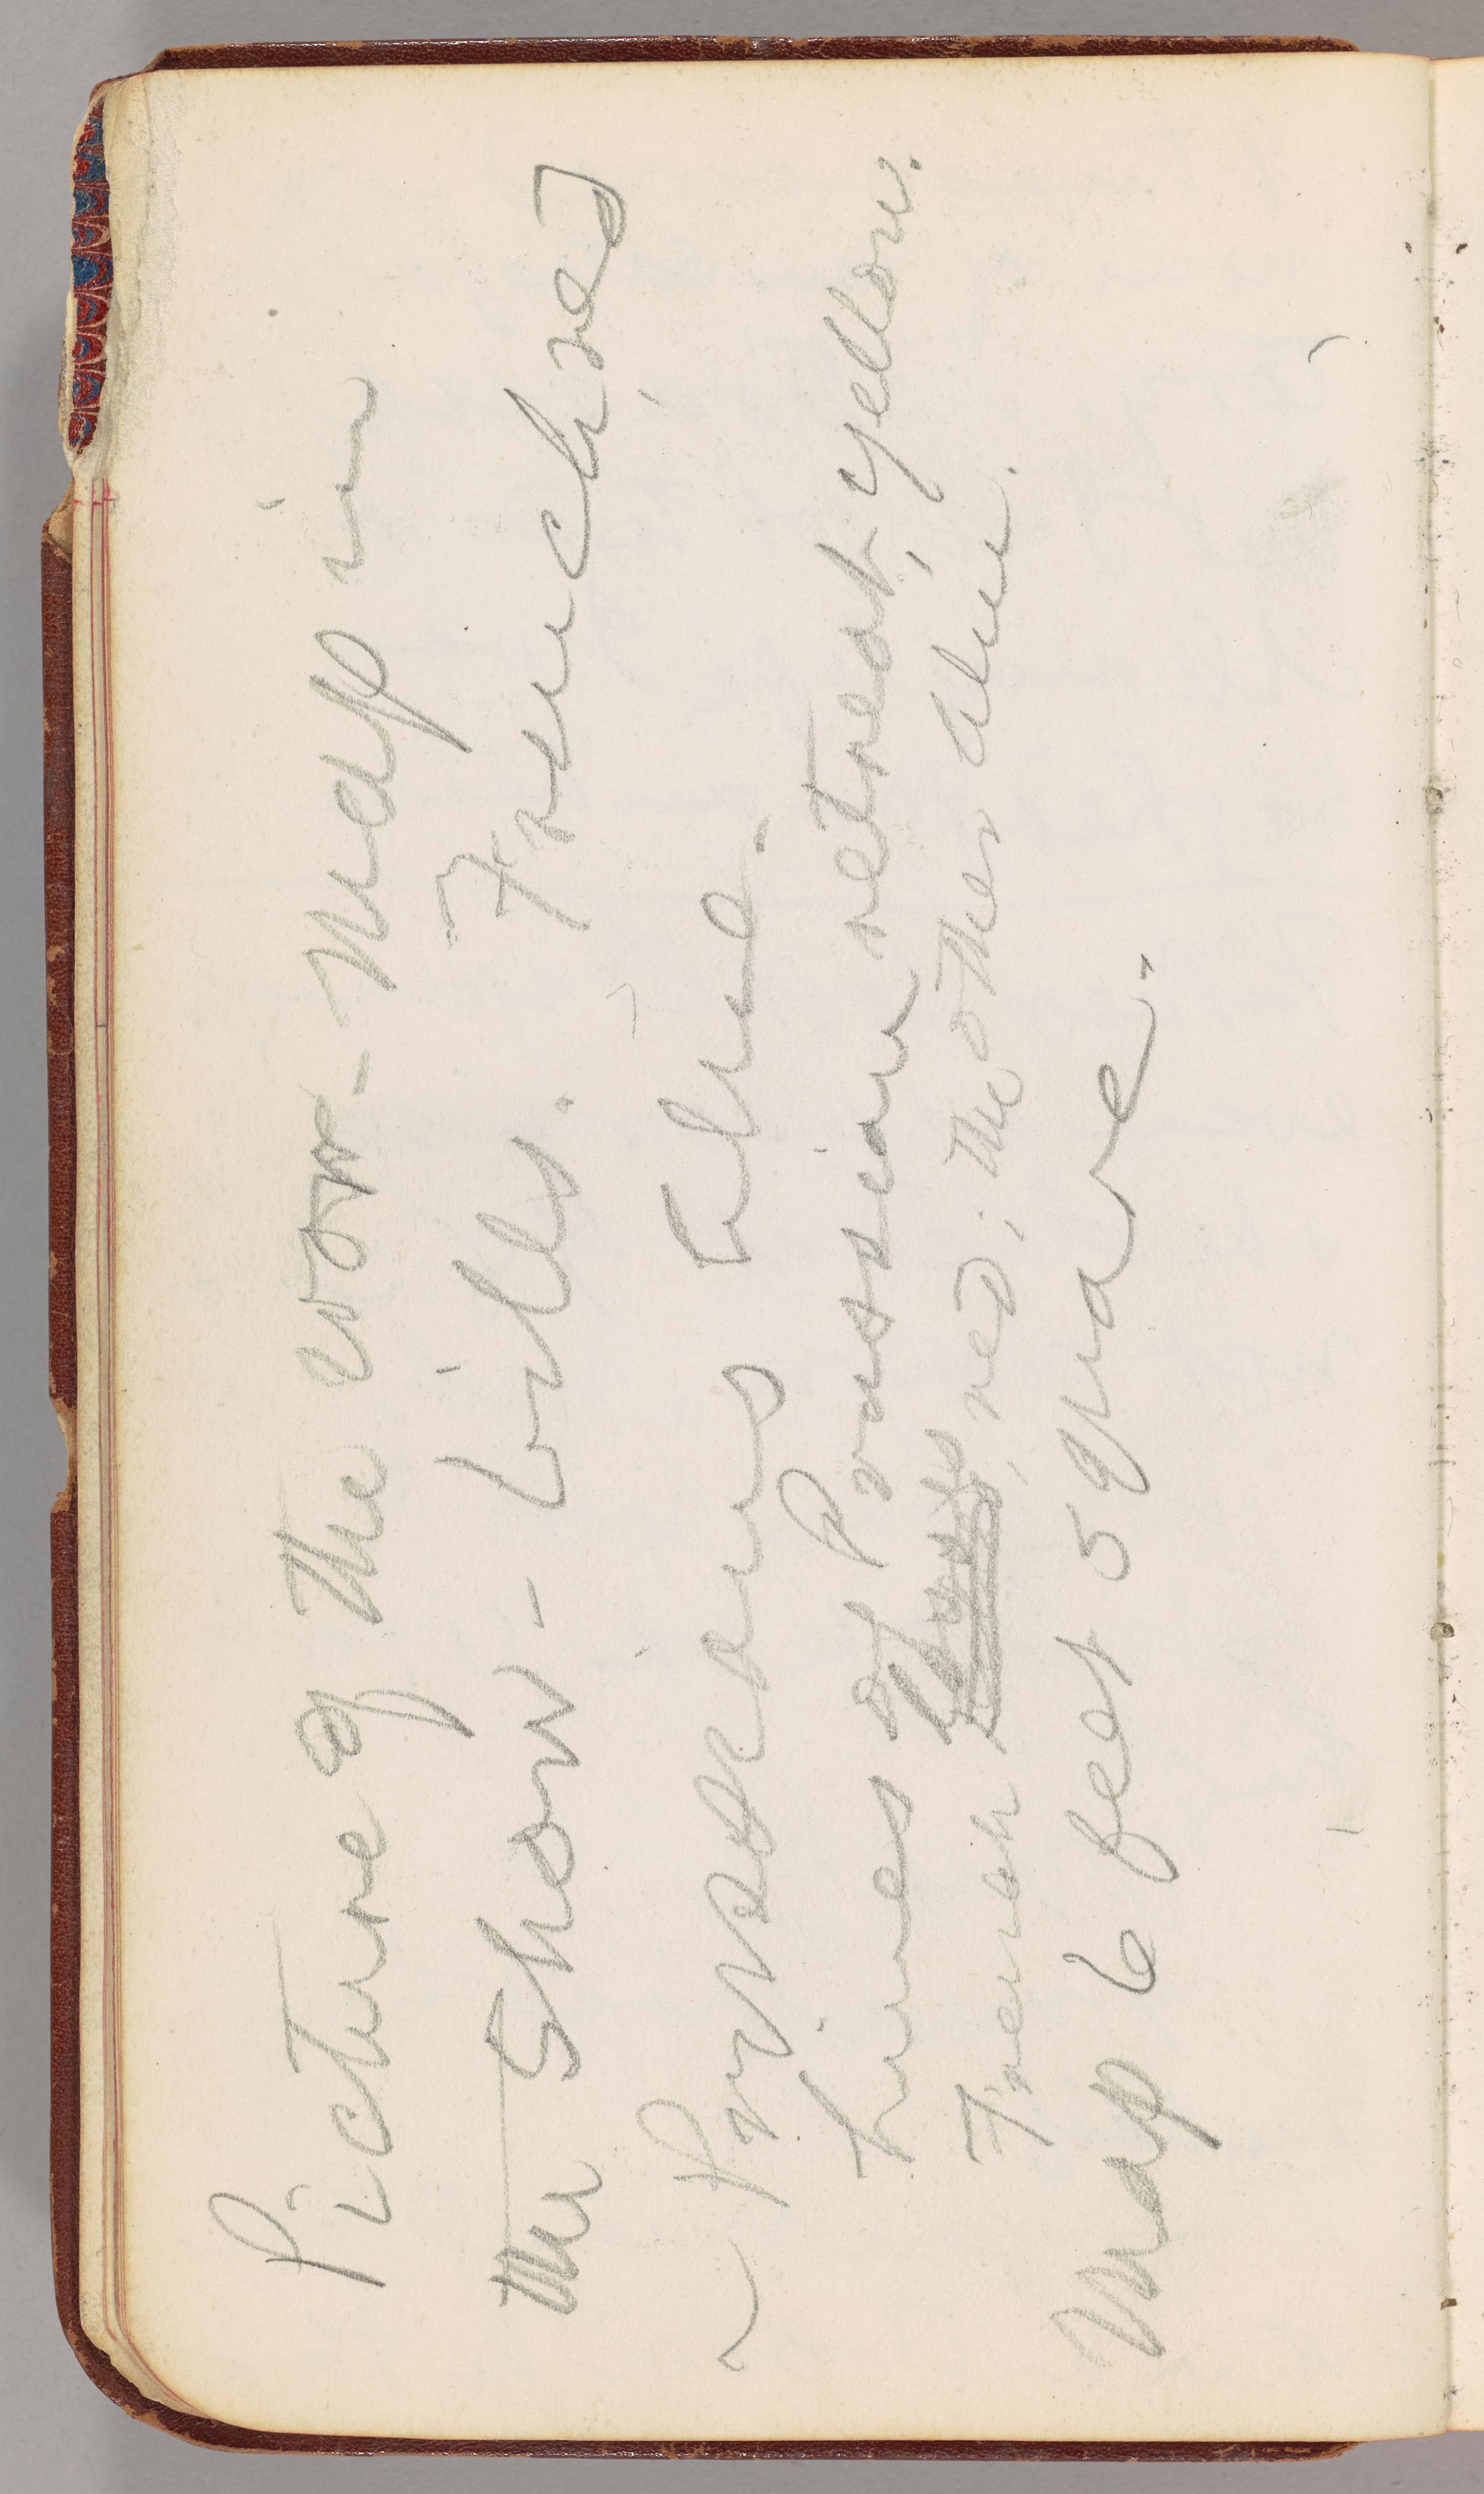 Picture of the war-map in
the show-bills. French, red
Prussians blue.
Lines of Prussian retreat, yellow.
French red; the other blue.
Map 6 feet square.